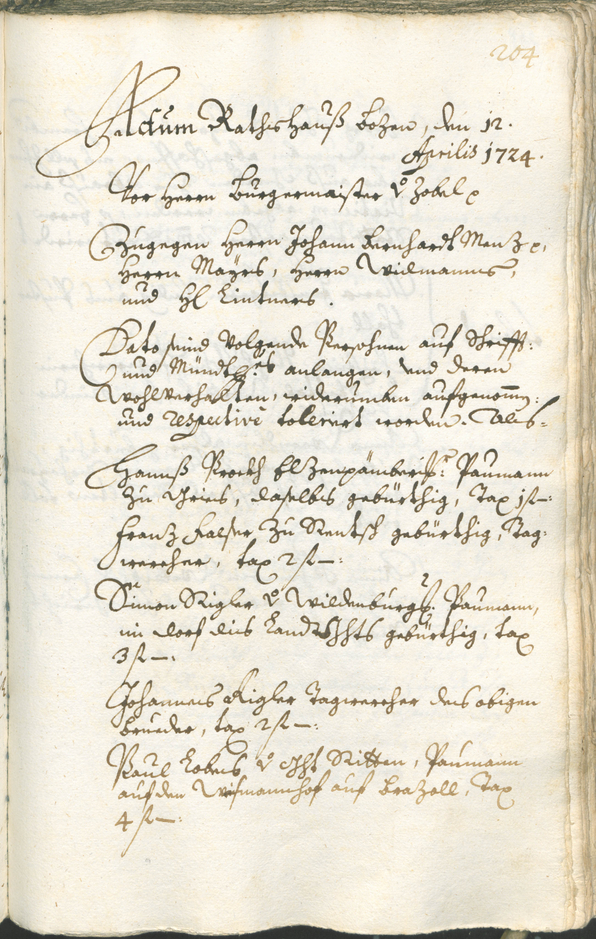 204
Actum Rathshauß Bozen, den 12.
Aprilis 1724.
Vor Herrn Burgermaister v Zobel p
Zugegen Herrn Johann Bernhardt Menz p,
Herrn Mayrs, Herrn Widmanns,
und H Lintners.
Dato seind volgende Persohnen auf Schrifft:
und Mündtles anlangen, und deren
Wohlverhalten, widerumben aufgenomn:
und respective tolleriert worden. Als=
Hannß Elzenpämberiss: Paumann
zu Gries, daselbs gebürthig, Tax 1 f —:
Franz Kalser zu Rentsch gebürthig, Tag:
wercher, tax 2 f —:
Simon Rigler v Wildenburgs: Paumann,
im dorf dis Landtghts gebürthig, tax
3 f —:
Johannes Rigler Tagwercher des obigen
brueder, tax 2 f —:
Paul Lobis v Ght Ritten, Paumann
auf den Wismannhof auf brazoll, Tax
4 f —: